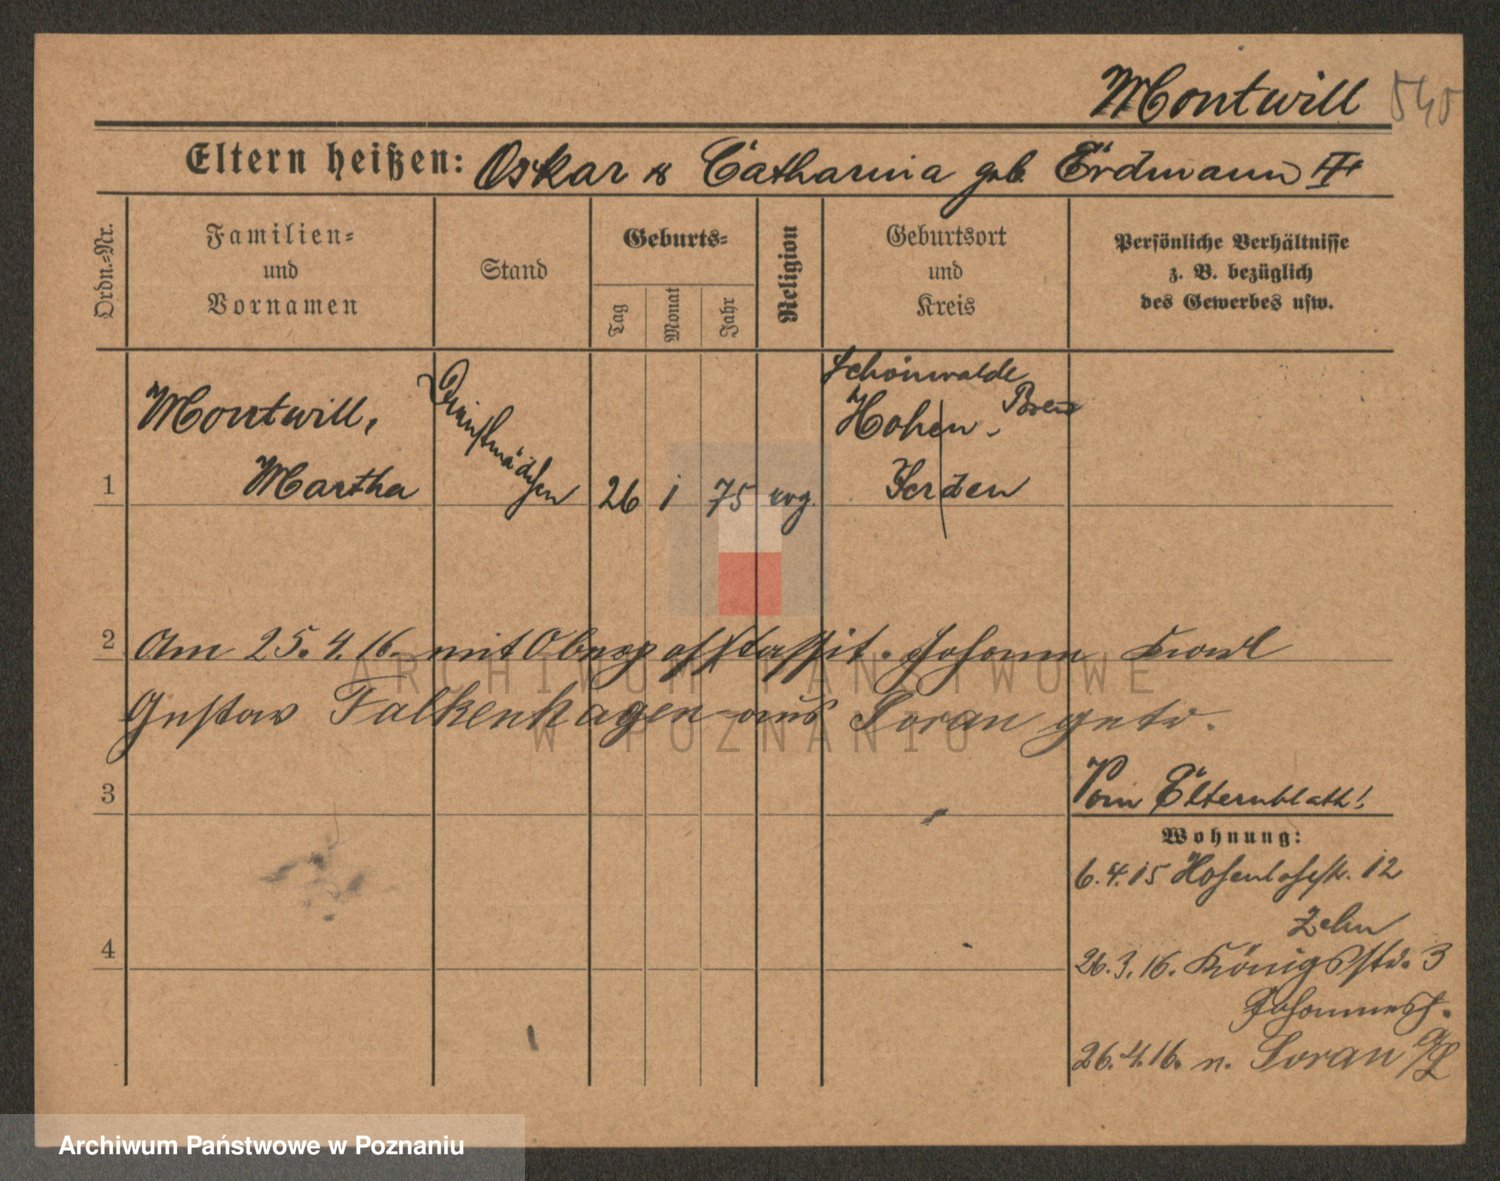 Montwill 545
Eltern heißen: Oskar & Catharina geb. Erdmann
Ordn.-Nr.
Familien-
und
Vornamen
Stand
Geburts-
Tag
Monat
Jahr
Religion
Geburtsort
und
Kreis
Persönliche Verhältnisse
z. B. bezüglich
des Gewerbes usw.
Schönwalde
Montwill, Hohen-
1 Martha Dienstmädchen 26 1 75 evg.
2 Am 25.4.16. mit Johann Karl
Gustav Falkenhagen aus Soran getr.
3 Vom Elternblatt!
Wohnung:
6.4.15 Hohenlohestr. 12
Zehn
4 26.3.16. Königsstr. 3
26.4.16. n. Soran
ARCHIWUM PAŃSTWOWE
W POZNANIU
Archiwum Państwowe w Poznaniu